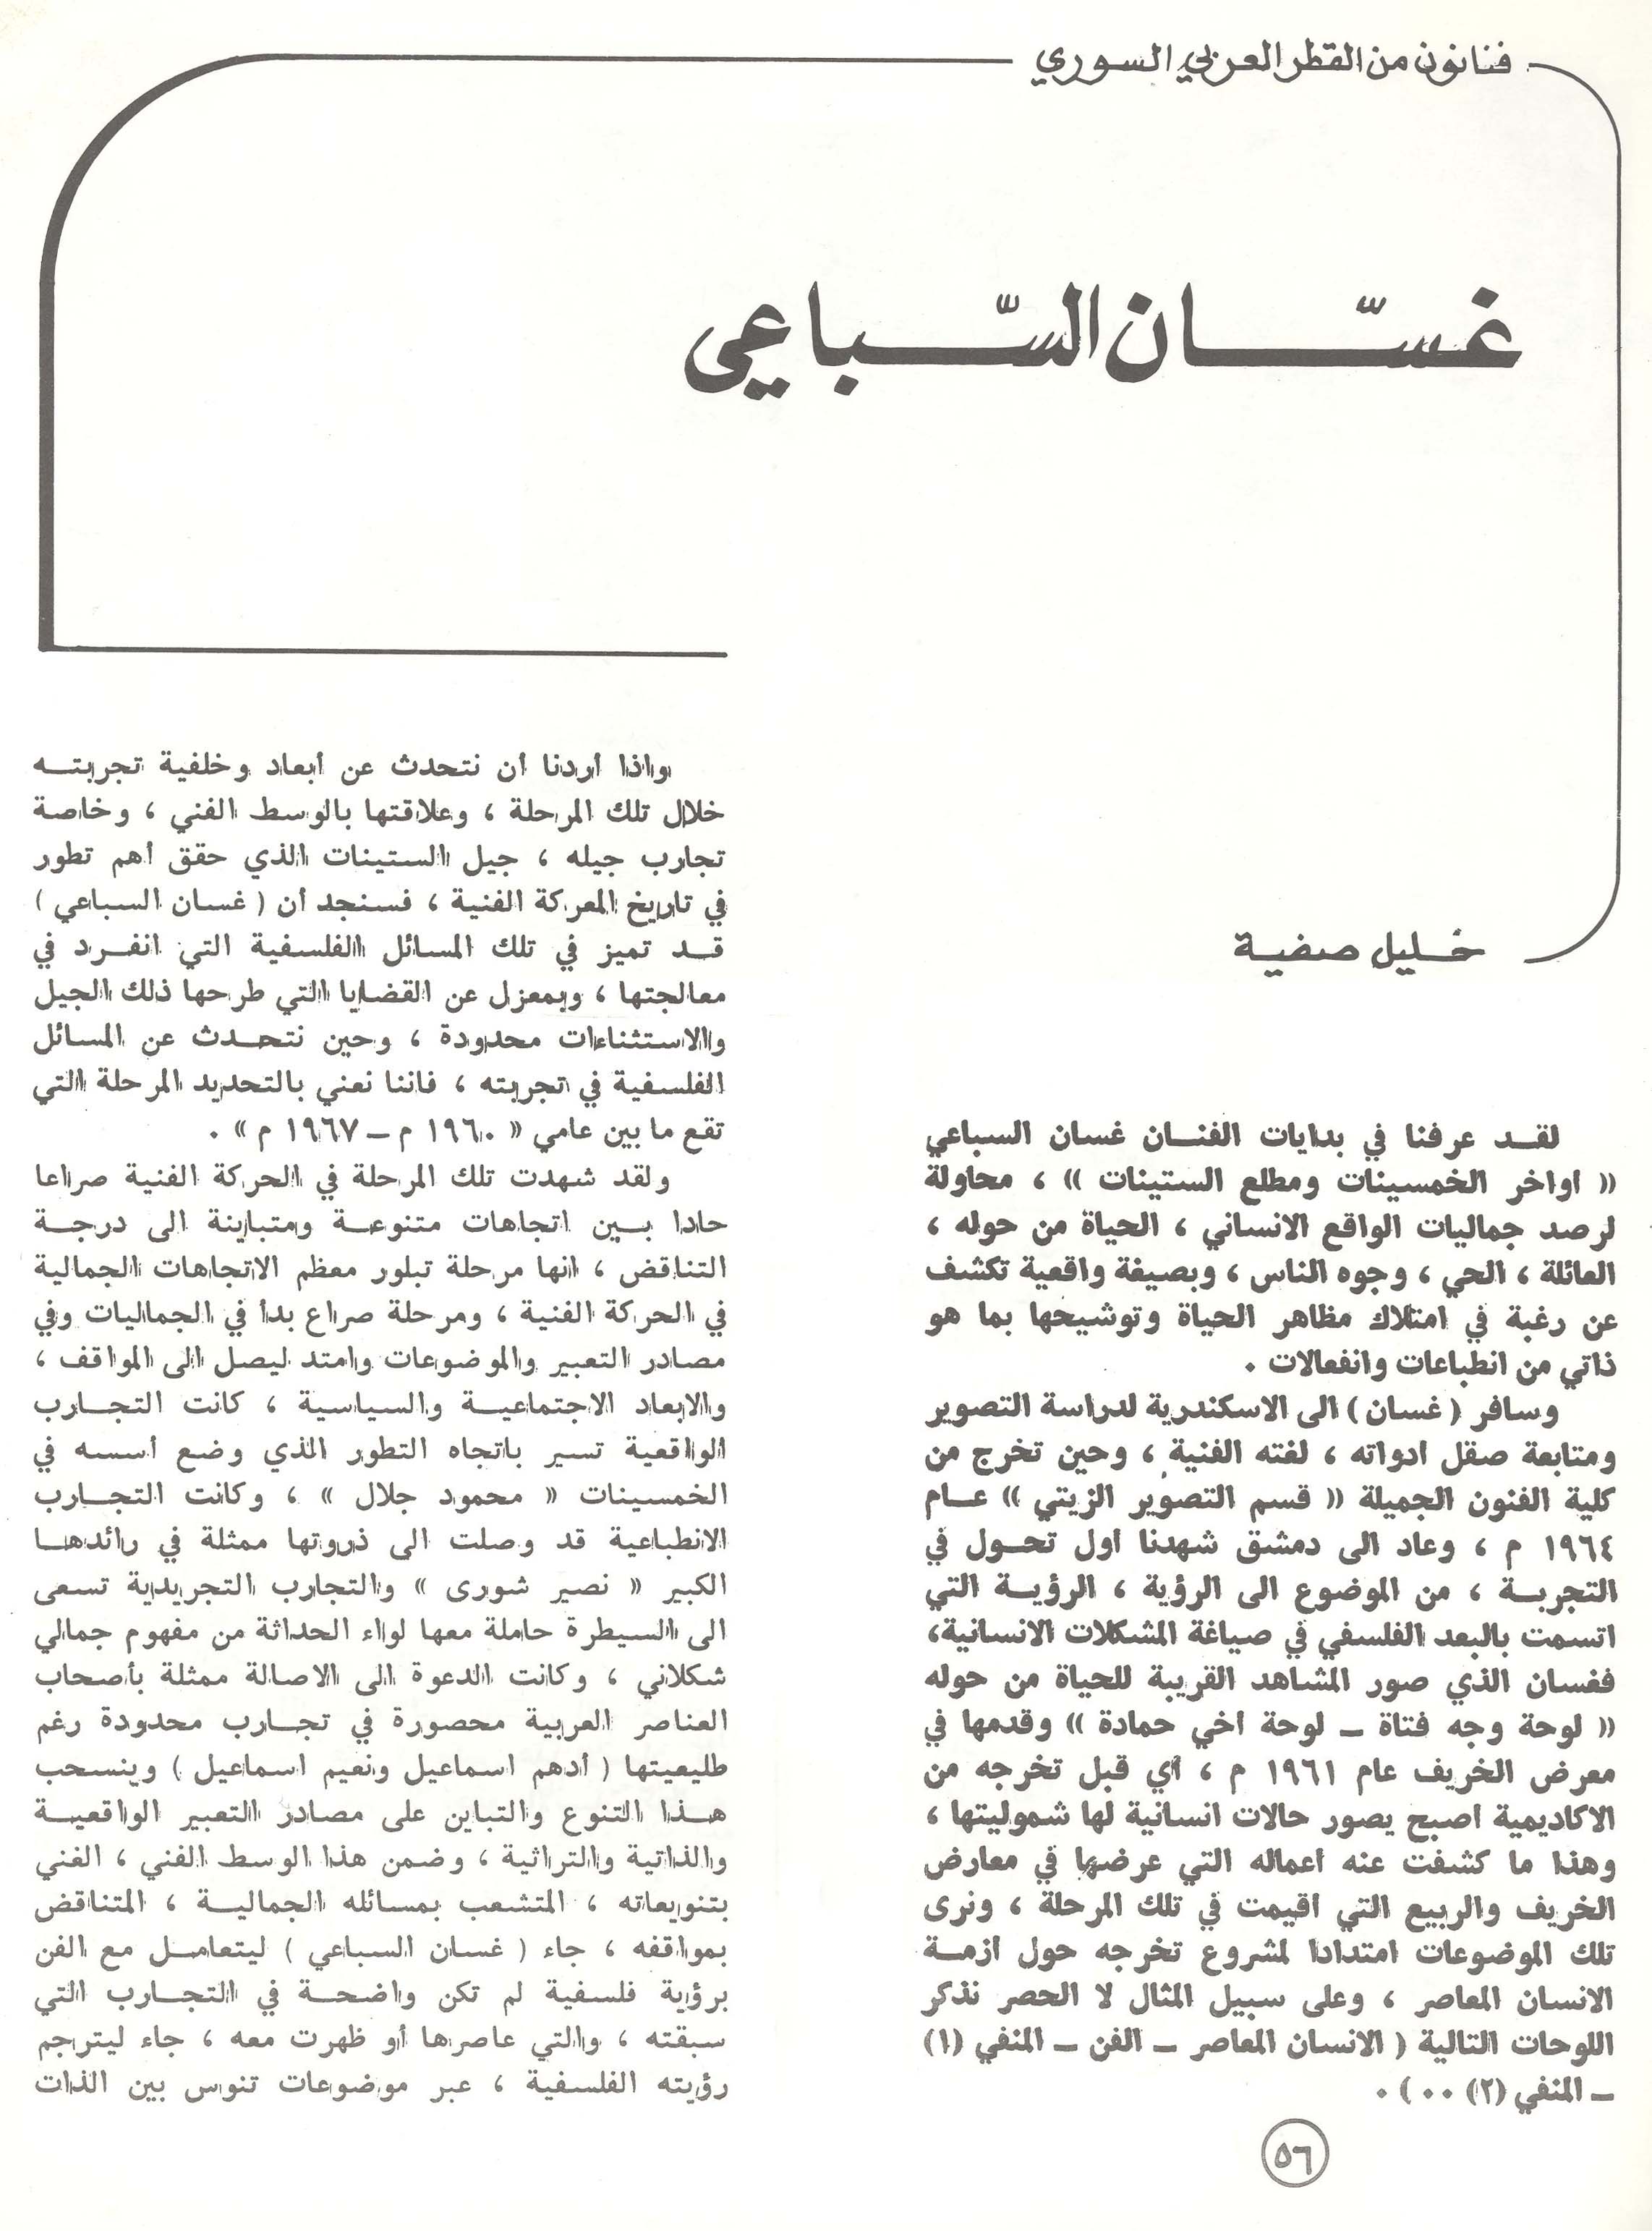 فنانون من القطر العربي السوري
غسّان السّباعي
خليل صفية
لقد عرفنا في بدايات الفنان غسان السباعي
« اواخر الخمسينات ومطلع الستينات » ، محاولة
لرصد جماليات الواقع الانساني ، الحياة من حوله ،
العائلة ، الحي ، وجوه الناس ، وبصيغة واقعية تكشف
عن رغبة في امتلاك مظاهر الحياة وتوشيحها بما هو
ذاتي من انطباعات وانفعالات .
وسافر ( غسان ) الى الاسكندرية لدراسة التصوير
ومتابعة صقل ادواته ، لغته الفنية ، وحين تخرج من
كلية الفنون الجميلة « قسم التصوير الزيتي » عام
١٩٦٤ م ، وعاد الى دمشق شهدنا اول تحول في
التجربة ، من الموضوع الى الرؤية ، الرؤية التي
اتسمت بالبعد الفلسفي في صياغة المشكلات الانسانية،
فغسان الذي صور المشاهد القريبة للحياة من حوله
« لوحة وجه فتاة ــ لوحة اخي حمادة » وقدمها في
معرض الخريف عام ١٩٦١ م ، أي قبل تخرجه من
الاكاديمية اصبح يصور حالات انسانية لها شموليتها ،
وهذا ما كشفت عنه اعماله التي عرضها في معارض
الخريف والربيع التي اقيمت في تلك المرحلة ، ونرى
تلك الموضوعات امتدادا لمشروع تخرجه حول أزمة
الانسان المعاصر ، وعلى سبيل المثال لا الحصر نذكر
اللوحات التالية ( الانسان المعاصر ــ الفن ــ المنفي (١)
ــ المنفي (٢) .. ) .
واذا اردنا ان نتحدث عن أبعاد وخلفية تجربته
خلال تلك المرحلة ، وعلاقتها بالوسط الفني ، وخاصة
تجارب جيله ، جيل الستينات الذي حقق أهم تطور
في تاريخ المعركة الفنية ، فسنجد أن ( غسان السباعي )
قد تميز في تلك المسائل الفلسفية التي انفرد في
معالجتها ، وبمعزل عن القضايا التي طرحها ذلك الجيل
والاستثناءات محدودة ، وحين نتحدث عن المسائل
الفلسفية في تجربته ، فاننا نعني بالتحديد المرحلة التي
تقع ما بين عامي « ١٩٦٠ م ــ ١٩٦٧ م » .
ولقد شهدت تلك المرحلة في الحركة الفنية صراعا
حادا بين اتجاهات متنوعة ومتباينة الى درجة
التناقض ، انها مرحلة تبلور معظم الاتجاهات الجمالية
في الحركة الفنية ، ومرحلة صراع بدأ في الجماليات وفي
مصادر التعبير والموضوعات وامتد ليصل الى المواقف ،
والابعاد الاجتماعية والسياسية ، كانت التجارب
الواقعية تسير باتجاه التطور الذي وضع أسسه في
الخمسينات « محمود جلال » ، وكانت التجارب
الانطباعية قد وصلت الى ذروتها ممثلة في رائدها
الكبير « نصير شورى » والتجارب التجريدية تسعى
الى السيطرة حاملة معها لواء الحداثة من مفهوم جمالي
شكلاني ، وكانت الدعوة الى الاصالة ممثلة بأصحاب
العناصر العربية محصورة في تجارب محدودة رغم
طليعيتها ( أدهم اسماعيل ونعيم اسماعيل ) وينسحب
هذا التنوع والتباين على مصادر التعبير الواقعية
والذاتية والتراثية ، وضمن هذا الوسط الفني ، الغني
بتنويعاته ، المتشعب بمسائله الجمالية ، المتناقض
بمواقفه ، جاء ( غسان السباعي ) ليتعامل مع الفن
برؤية فلسفية لم تكن واضحة في التجارب التي
سبقته ، والتي عاصرها أو ظهرت معه ، جاء ليترجم
رؤيته الفلسفية ، عبر موضوعات تنوس بين الذات
٥٦